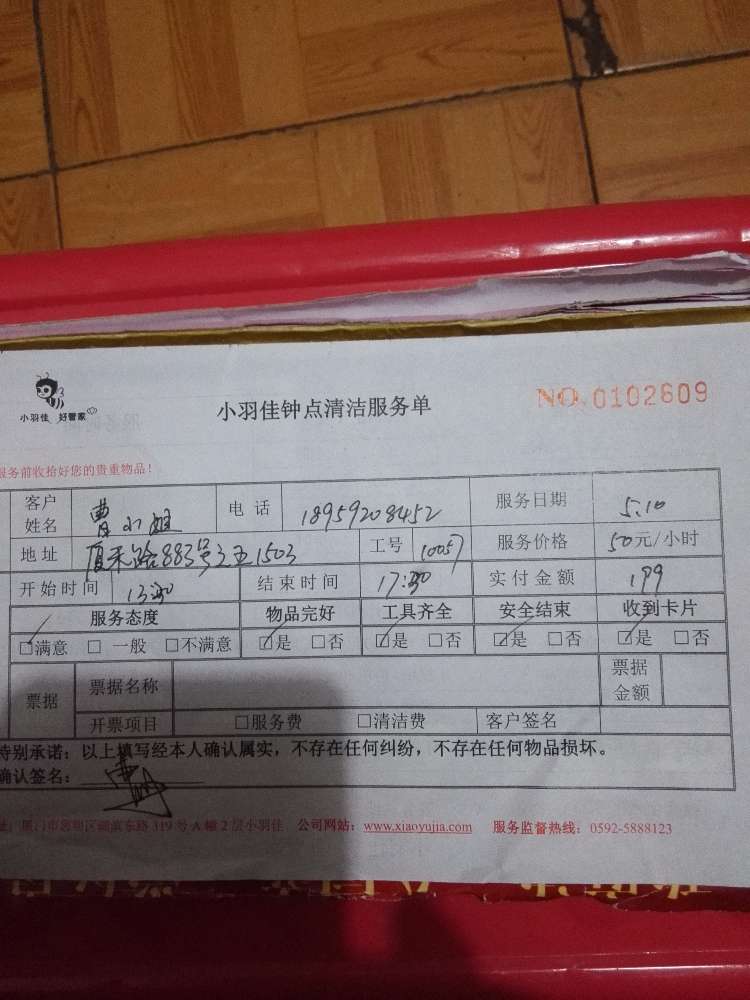 小羽佳 好管家
小羽佳钟点清洁服务单
NO. 0102609
服务前收拾好您的贵重物品！
客户姓名 曹小姐 电话 18959208452 服务日期 5.10
地址 厦禾路883号之五1503 工号 10057 服务价格 50元/小时
开始时间 13:30 结束时间 17:30 实付金额 199
服务态度 物品完好 工具齐全 安全结束 收到卡片
☑满意 □一般 □不满意 ☑是 □否 ☑是 □否 ☑是 □否 ☑是 □否
票据 票据名称 票据金额
开票项目 □服务费 □清洁费 客户签名
特别承诺：以上填写经本人确认属实，不存在任何纠纷，不存在任何物品损坏。
确认签名：
址：厦门市思明区湖滨东路319号A幢2层小羽佳 公司网站：www.xiaoyujia.com 服务监督热线：0592-5888123